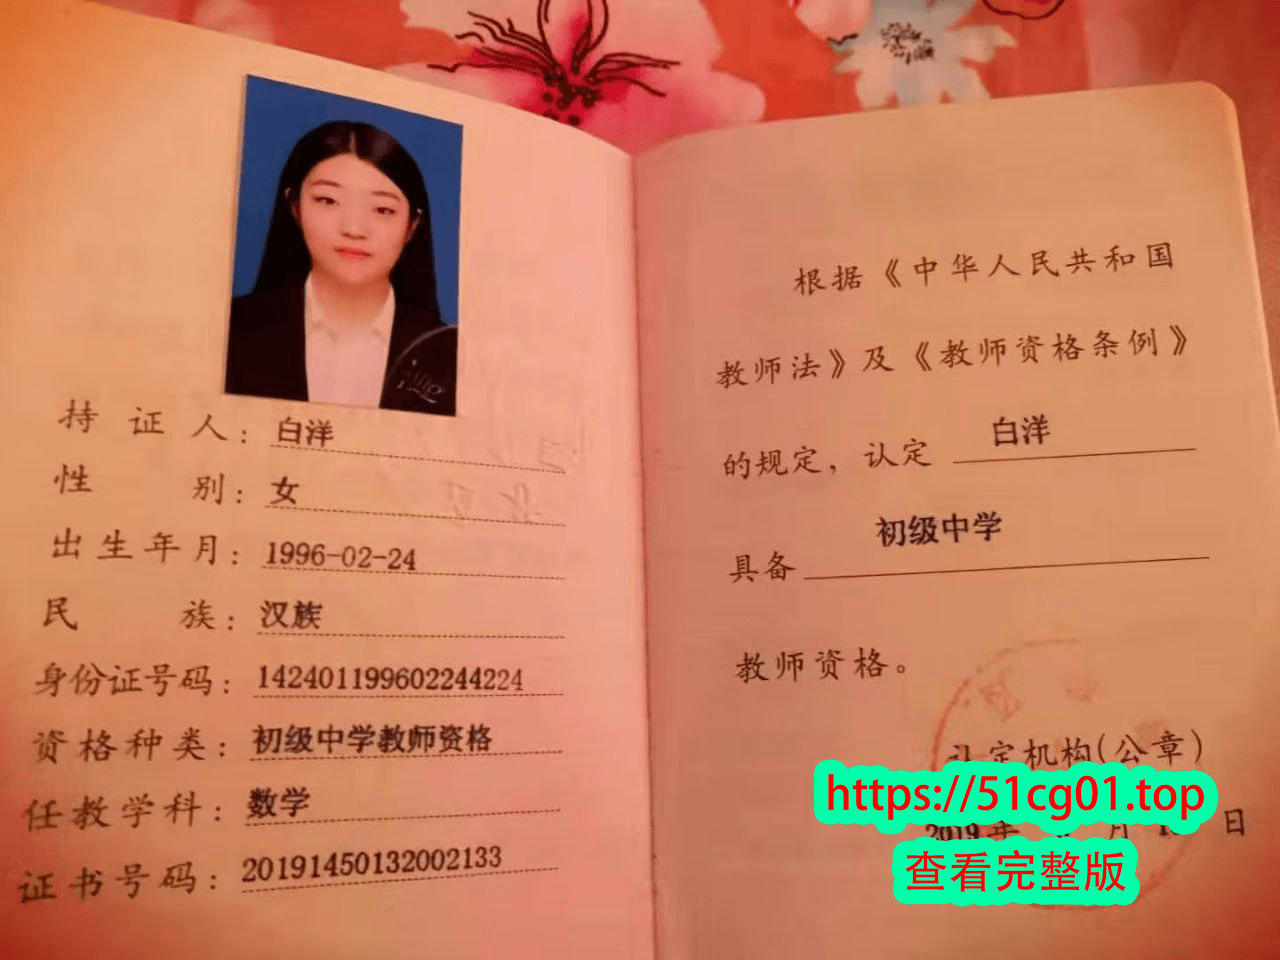 持证人：白洋
性别：女
出生年月：1996-02-24
民族：汉族
身份证号码：142401199602244224
资格种类：初级中学教师资格
任教学科：数学
证书号码：20191450132002133
根据《中华人民共和国
教师法》及《教师资格条例》
的规定，认定 白洋
具备 初级中学
教师资格。
认定机构(公章)
https://51cg01.top
2019年 月 日
查看完整版